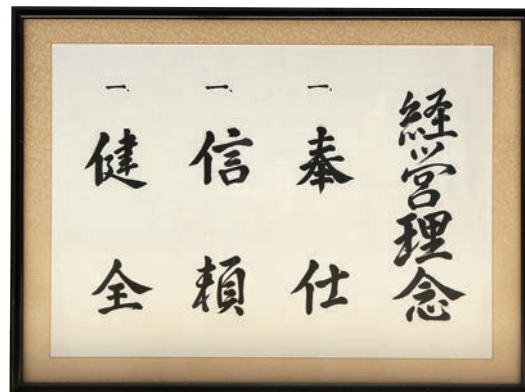 経営理念
一、奉仕
一、信頼
一、健全